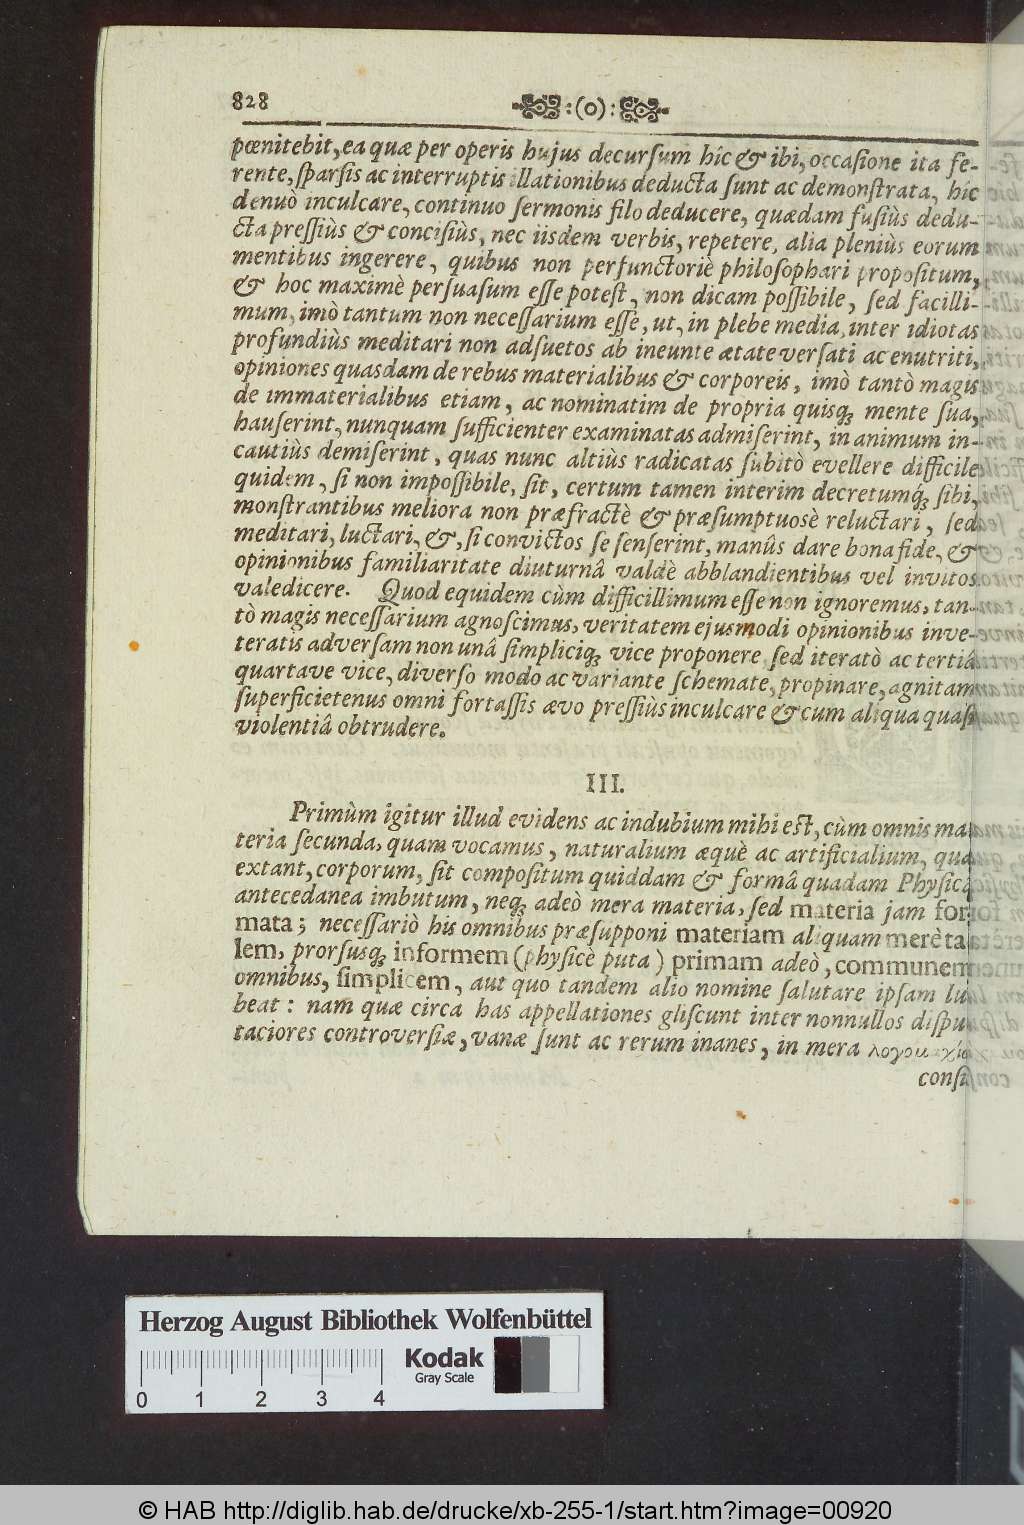 828 :(o):
pœnitebit, ea quæ per operis hujus decursum hîc & ibi, occasione ita fe-
rente, sparsis ac interruptis illationibus deducta sunt ac demonstrata, hîc
denuò inculcare, continuo sermonis filo deducere, quædam fusiùs dedu-
cta pressiùs & concisiùs, nec iisdem verbis, repetere, alia pleniùs eorum
mentibus ingerere, quibus non perfunctoriè philosophari propositum,
& hoc maximè persuasum esse potest, non dicam possibile, sed facilli-
mum, imò tantum non necessarium esse, ut, in plebe media, inter idiotas
profundiùs meditari non adsuetos ab ineunte ætate versati ac enutriti,
opiniones quasdam de rebus materialibus & corporeis, imò tantò magis
de immaterialibus etiam, ac nominatim de propria quisq; mente sua,
hauserint, nunquam sufficienter examinatas admiserint, in animum in-
cautiùs demiserint, quas nunc altiùs radicatas subitò evellere difficile
quidem, si non impossibile, sit, certum tamen interim decretumq́; sibi,
monstrantibus meliora non præfractè & præsumptuosè reluctari, sed
meditari, luctari, &, si convictos se senserint, manûs dare bona fide, &
opinionibus familiaritate diuturnâ valdè abblandientibus vel invitos
valedicere. Quod equidem cùm difficillimum esse non ignoremus, tan-
tò magis necessarium agnoscimus, veritatem ejusmodi opinionibus inve-
teratis adversam non unâ simpliciq; vice proponere, sed iteratò ac tertiâ
quartave vice, diverso modo ac variante schemate, propinare, agnitam
superficietenus omni fortassis ævo pressiùs inculcare & cum aliqua quasi
violentiâ obtrudere.
III.
Primùm igitur illud evidens ac indubium mihi est, cùm omnis ma
teria secunda, quam vocamus, naturalium æquè ac artificialium, quæ
extant, corporum, sit compositum quiddam & formâ quadam Physicâ
antecedanea imbutum, neq; adeò mera materia, sed materia jam for
mata; necessariò his omnibus præsupponi materiam aliquam merè ta
lem, prorsusq; informem (physicè puta) primam adeò, communem
omnibus, simplicem, aut quo tandem alio nomine salutare ipsam lu
beat: nam quæ circa has appellationes gliscunt inter nonnullos dispu
taciores controversiæ, vanæ sunt ac rerum inanes, in mera
consi
Herzog August Bibliothek Wolfenbüttel
Kodak
Gray Scale
0 1 2 3 4
© HAB http://diglib.hab.de/drucke/xb-255-1/start.htm?image=00920